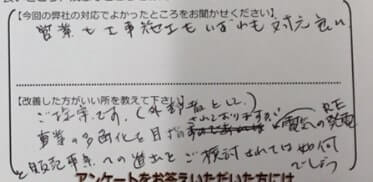 【今回の弊社の対応でよかったところをお聞かせください】
営業も工事施工もいずれも対応良い
【改善した方がいい所を教えて下さい】
ご苦労さまです。(外部者として)
事業の多角化を目指されております。
電気の発電 RE
と販売事業への進出をご検討されては如何
でしょう
アンケートをお答えいただいた方には